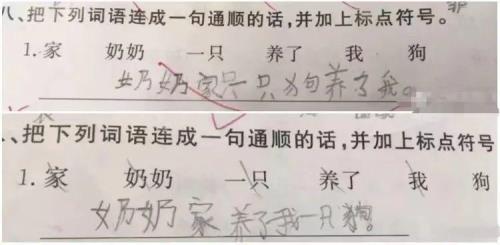 八、把下列词语连成一句通顺的话,并加上标点符号。
1.家 奶奶 一只 养了 我 狗
奶奶家只一只狗养了我。
、把下列词语连成一句通顺的话,并加上标点符号
1.家 奶奶 一只 养了 我 狗
奶奶家养了我一只狗。